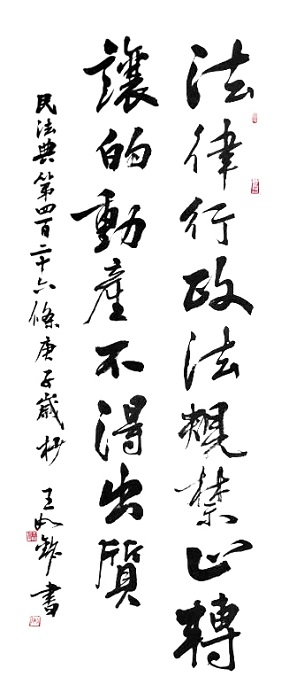 法律行政法規禁止轉
讓的動產不得出質
民法典第四百二十六條庚子歲杪 王 書